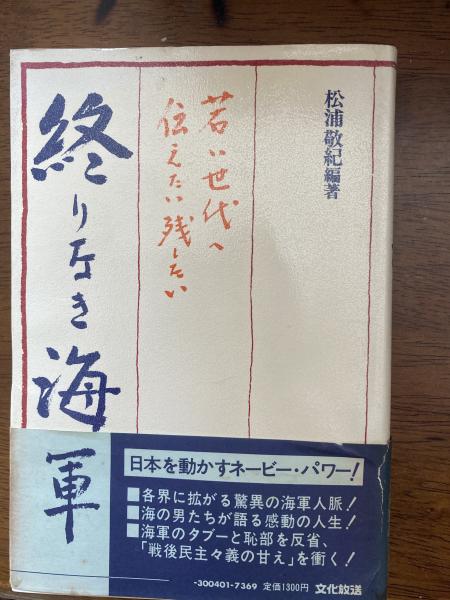 松浦敬紀編著
若い世代へ
伝えたい残したい
終りなき海軍
日本を動かすネービー・パワー！
■各界に拡がる驚異の海軍人脈！
■海の男たちが語る感動の人生！
■海軍のタブーと恥部を反省、
「戦後民主々義の甘え」を衝く！
-300401-7369 定価1300円 文化放送